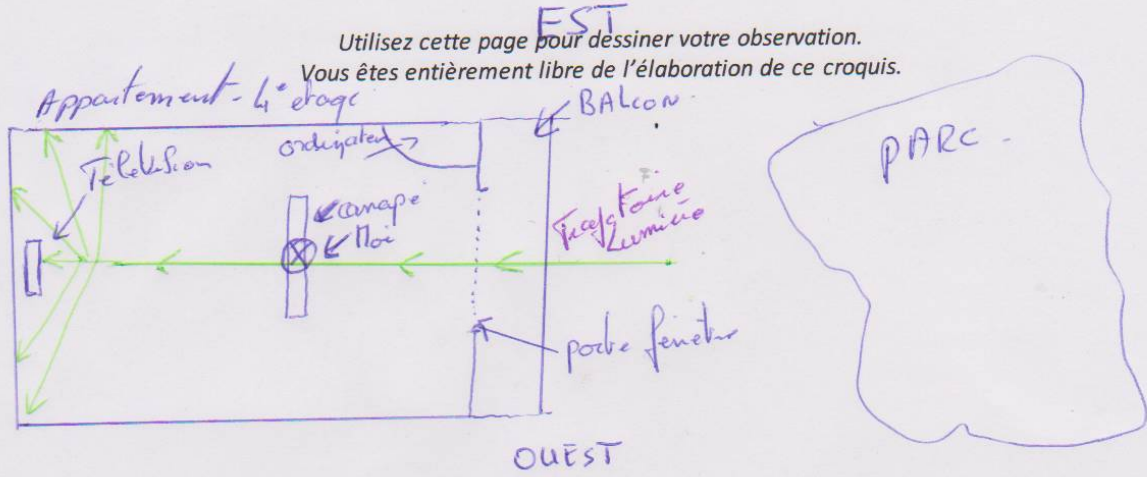 EST
Utilisez cette page pour dessiner votre observation.
Vous êtes entièrement libre de l'élaboration de ce croquis.
Appartement - 4° étage
BALCON
ordinateur
PARC
Télévision
canapé
Moi
Trajatoire
Lumière
porte fenêtre
OUEST